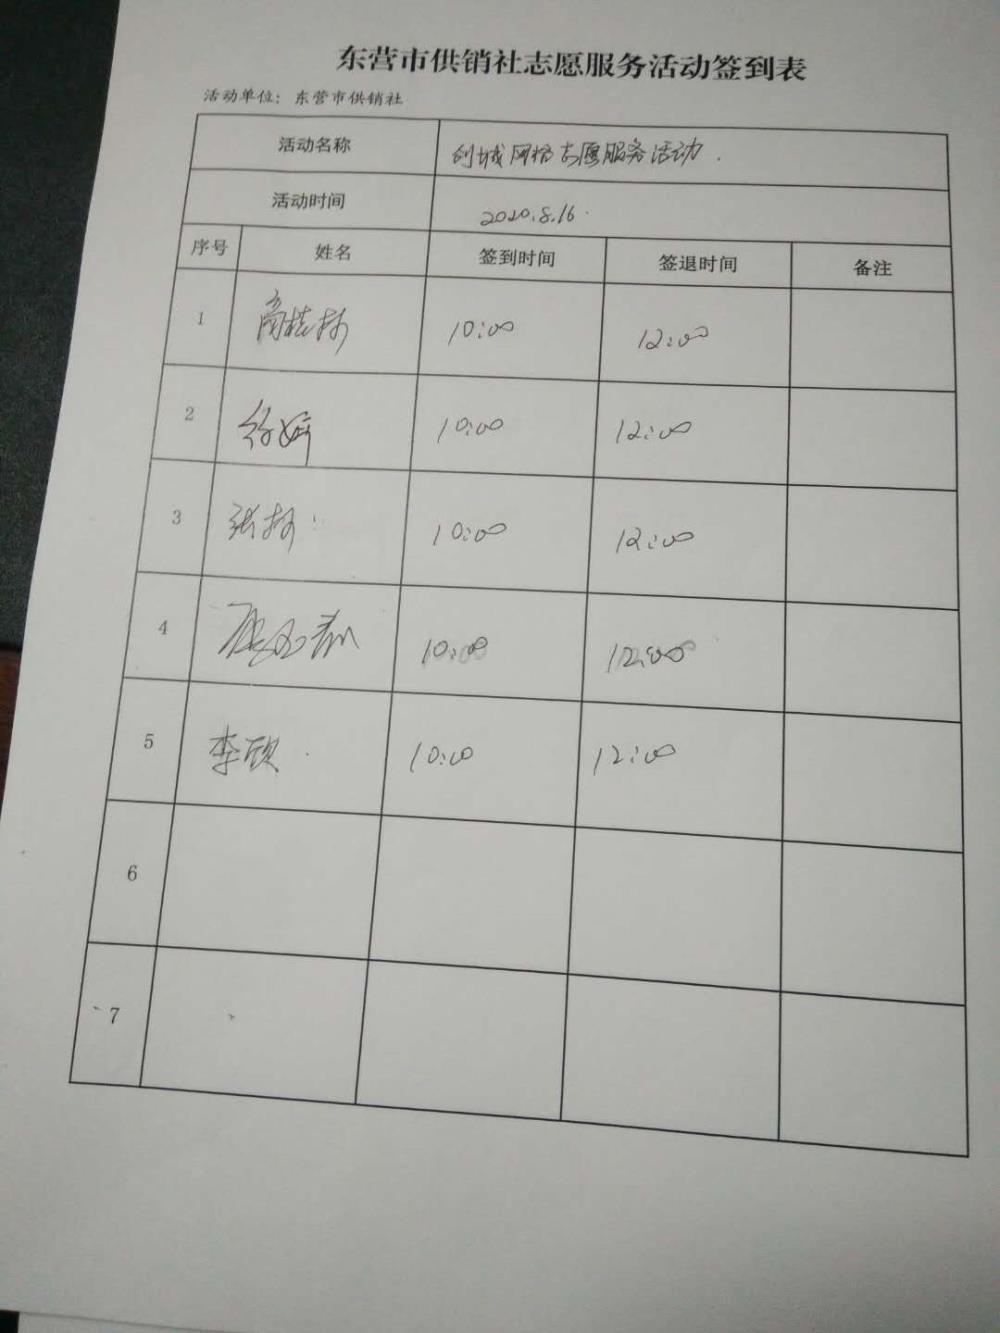 东营市供销社志愿服务活动签到表
活动单位：东营市供销社
活动名称 创城网格志愿服务活动.
活动时间 2020.8.16.
序号 姓名 签到时间 签退时间 备注
1 10:00 12:00
2 徐婷 10:00 12:00
3 张林 10:00 12:00
4 10:00 12:00
5 李欣 10:00 12:00
6
7